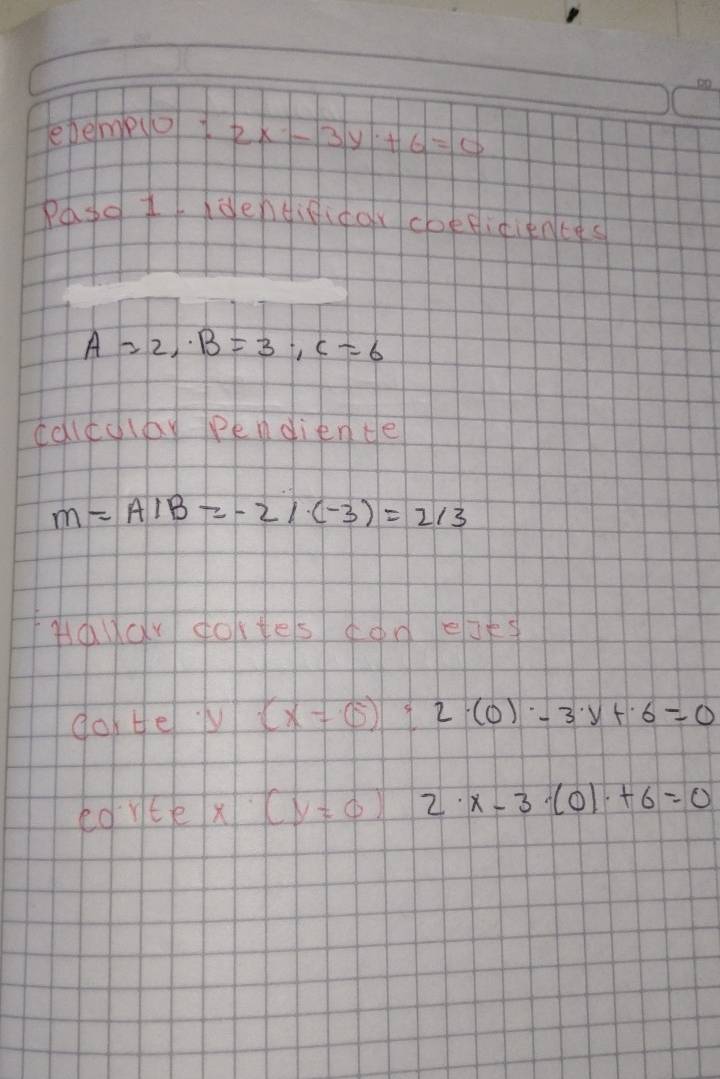 ejemplo : 2x - 3y + 6 = 0
Paso 1 - identificar coeficientes
A = 2, B = 3, c = 6
calcular Pendiente
m = A / B = -2 / (-3) = 2/3
Hallar cortes con ejes
corte y (x = 0) : 2 · (0) - 3 · y + 6 = 0
corte x (y = 0) 2 · x - 3 · (0) + 6 = 0